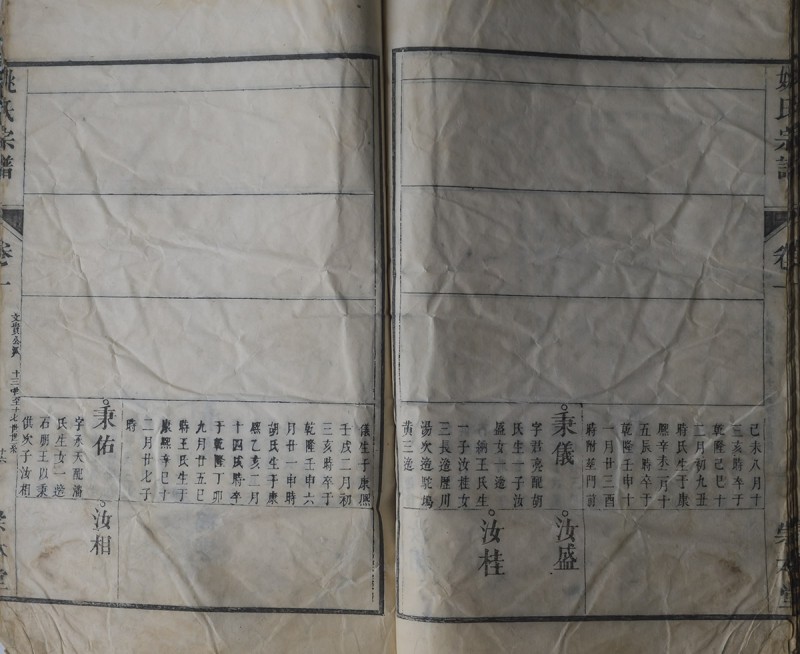 姚氏宗譜
卷一
己未八月十
三亥時卒于
乾隆己巳十
二月初九丑
時氏生于康
熙辛未二月十
五辰時卒于
乾隆壬申十
一月廿三酉
時附葬門前
秉儀
字君亮配胡
氏生一子汝
盛女一適
納王氏生
一子汝桂女
三長適歷川
湯次適駝塢
黃三適
汝盛
汝桂
儀生于康熙
壬戌二月初
三亥時卒于
乾隆壬申六
月廿一申時
胡氏生于康
熙乙亥二月
十四戌時卒
于乾隆丁卯
九月廿五巳
時王氏生于
康熙辛巳十
二月廿七子
時
秉佑
字承天配潘
氏生女一適
石朋王以秉
供次子汝相
汝相
姚氏宗譜
卷一